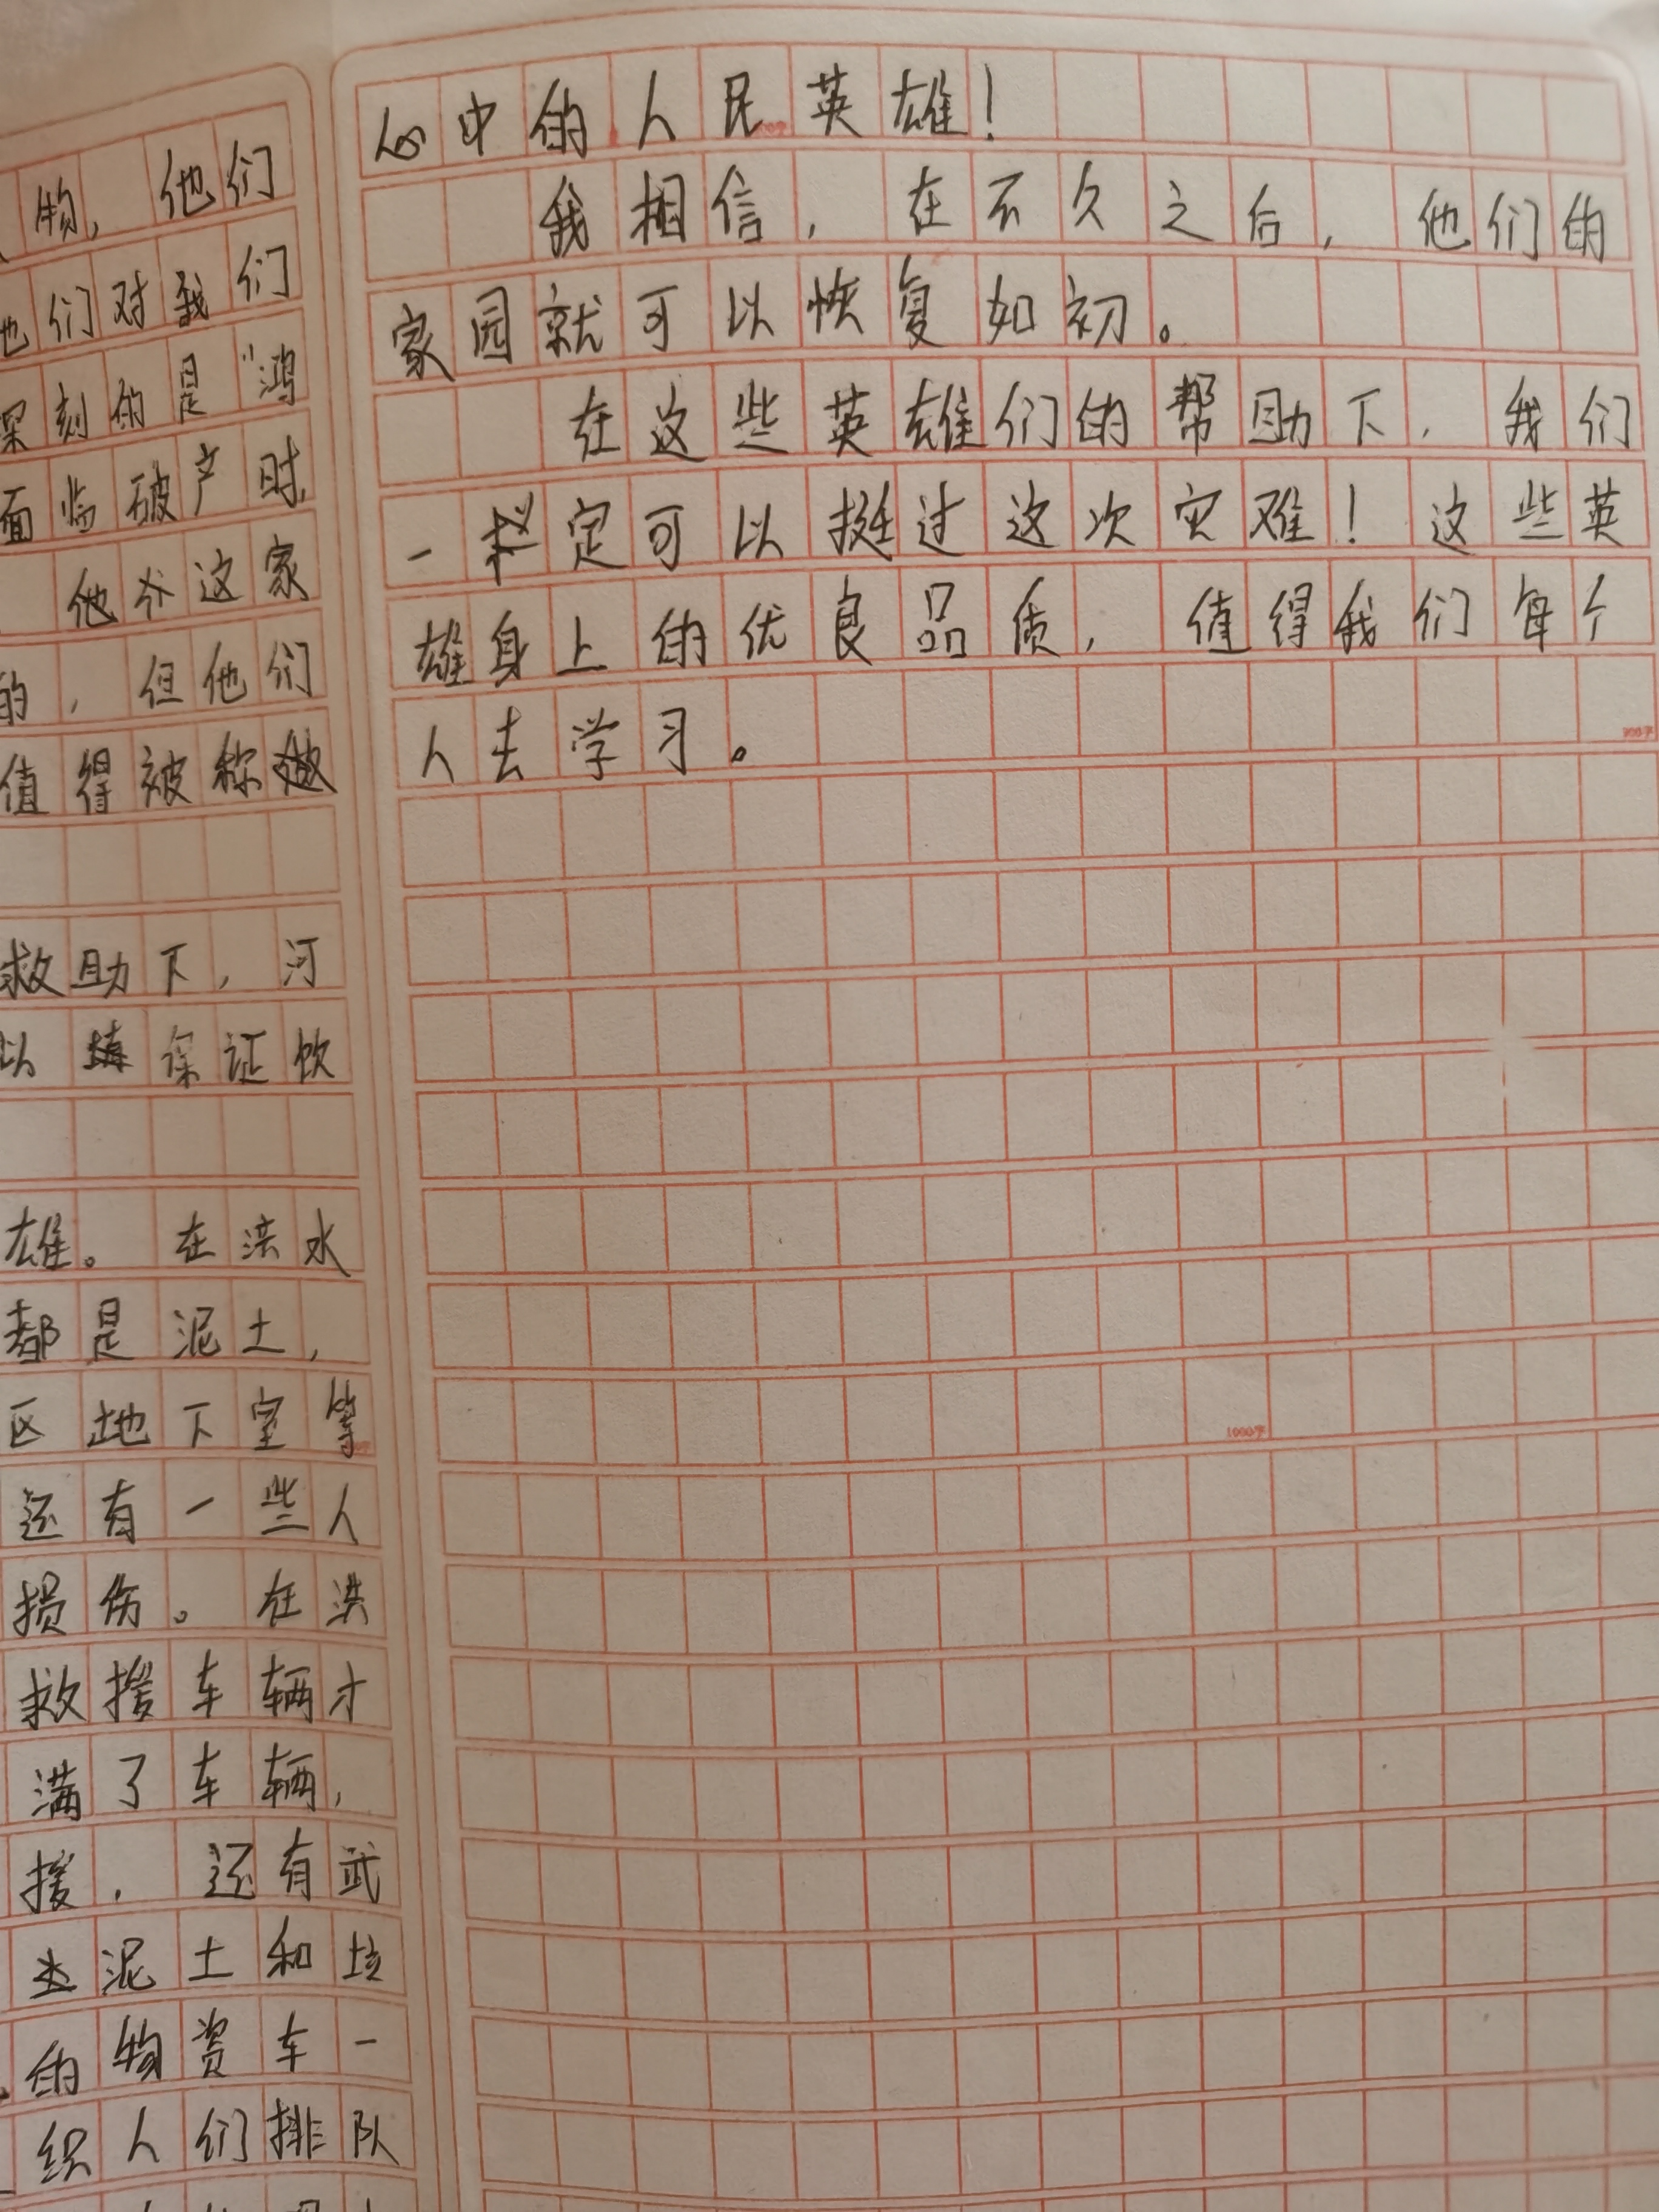 物，他们
他们对我们
深刻的是“鸿
面临破产时，
他个这家
的，但他们
值得被称做
救助下，河
以 保证饮
雄。在洪水
都是泥土，
区地下室等
还有一些人
损伤。在洪
救援车辆才
满了车辆，
援，还有武
去泥土和垃
的物资车一
织人们排队
心中的人民英雄！
我相信，在不久之后，他们的
家园就可以恢复如初。
在这些英雄们的帮助下，我们
一定可以挺过这次灾难！这些英
雄身上的优良品质，值得我们每个
人去学习。
900字
1000字